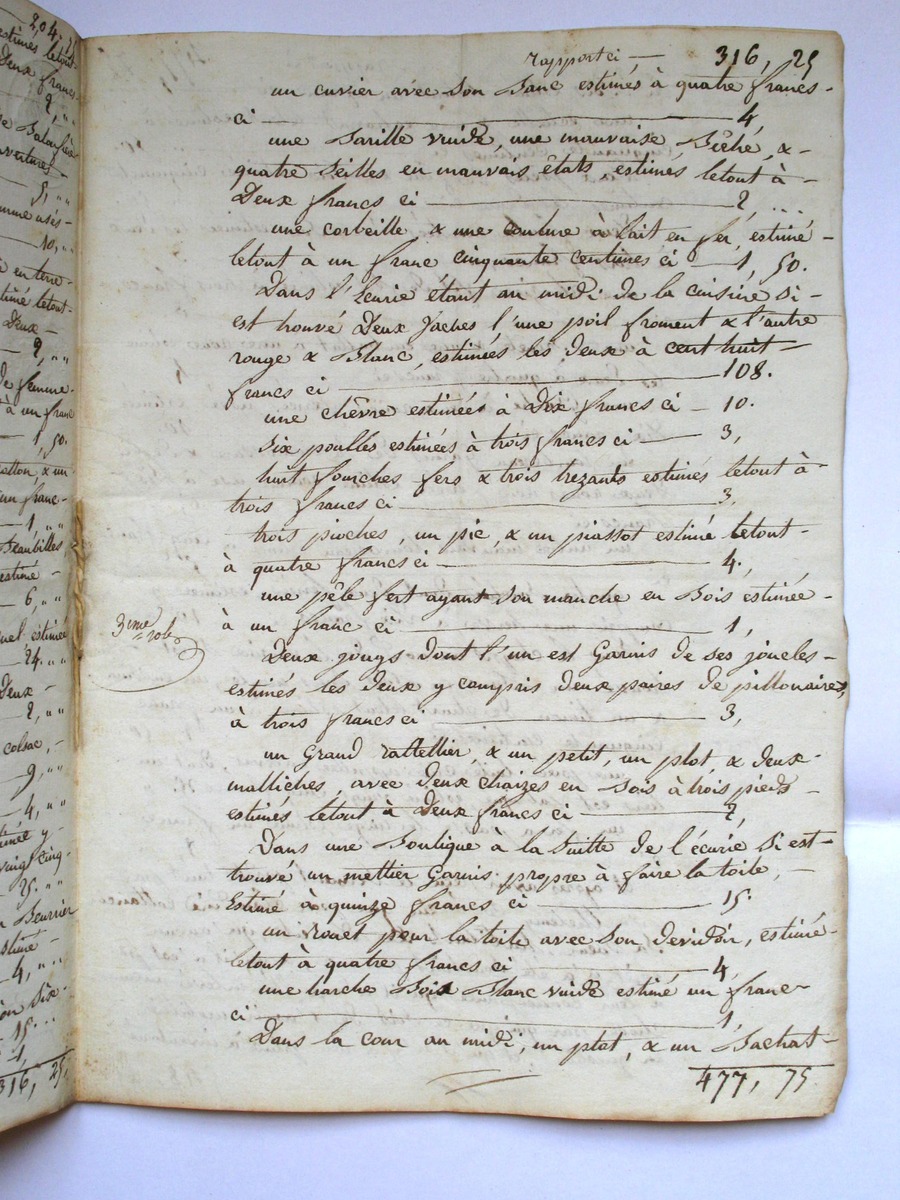 204,
estimés letout-
Deux francs
2, ""
vertures-
5, ""
10, ""
en terre
estimé letout-
Deux -
2, ""
de femme-
à un franc
1, 50.
un franc-
1, ""
estimé -
6, ""
estimée
24. ""
Deux -
2, ""
colsac, -
9, ""
4, ""
vingt cinq-
25. ""
Beurrier
4, ""
15. ...
1,
316, 25,
rapport ci — 316, 25
un cuvier avéc son banc estimés à quatre francs-
ci — 4,
une barille vuide, une mauvaise sciéhé, &-
quatre seilles en mauvais êtats, estimés letout à-
Deux francs ci — 2, ...
une corbeille & une couture à lait en fer, estimé-
letout à un franc cinquante centimes ci — 1, 50.
Dans l'Scurie étant au midi de la cuisine si-
est trouvé Deux Vaches l'une poil froment & l'autre
rouge & blanc, estimées les deux à cent huit-
francs ci — 108.
une chêvre estimées à Dix francs ci - 10.
Six poulles estimées à trois francs ci — 3,
huit fourches fers & trois trezants estimés letout à-
trois francs ci — 3,
trois pioches, un pic, & un piassot estimé letout-
à quatre francs ci — 4.,
une pêle fert ayant son manche en bois estimée-
à un franc ci — 1,
3ime role
Deux jougs dont l'un est Garnis de ses joucles-
estimés les deux y compris deux paires de pillonaires,
à trois francs ci — 3,
un Grand rattellier, & un petit, un plot & deux-
malliches, avec deux chaizes en bois à trois pieds-
estimés letout à Deux francs ci — 2,
Dans une boutique à la suitte de l'écurie si est-
trouvé un mettier Garnis propre à faire la toile, -
Estimé à quinze francs ci — 15.
un rouet pour la toile avec son devidoir, estimé-
letout à quatre francs ci — 4,
une harche bois blanc vuide estimé un franc-
ci — 1,
Dans la cour au midi, un plot, & un bachat-
477, 75